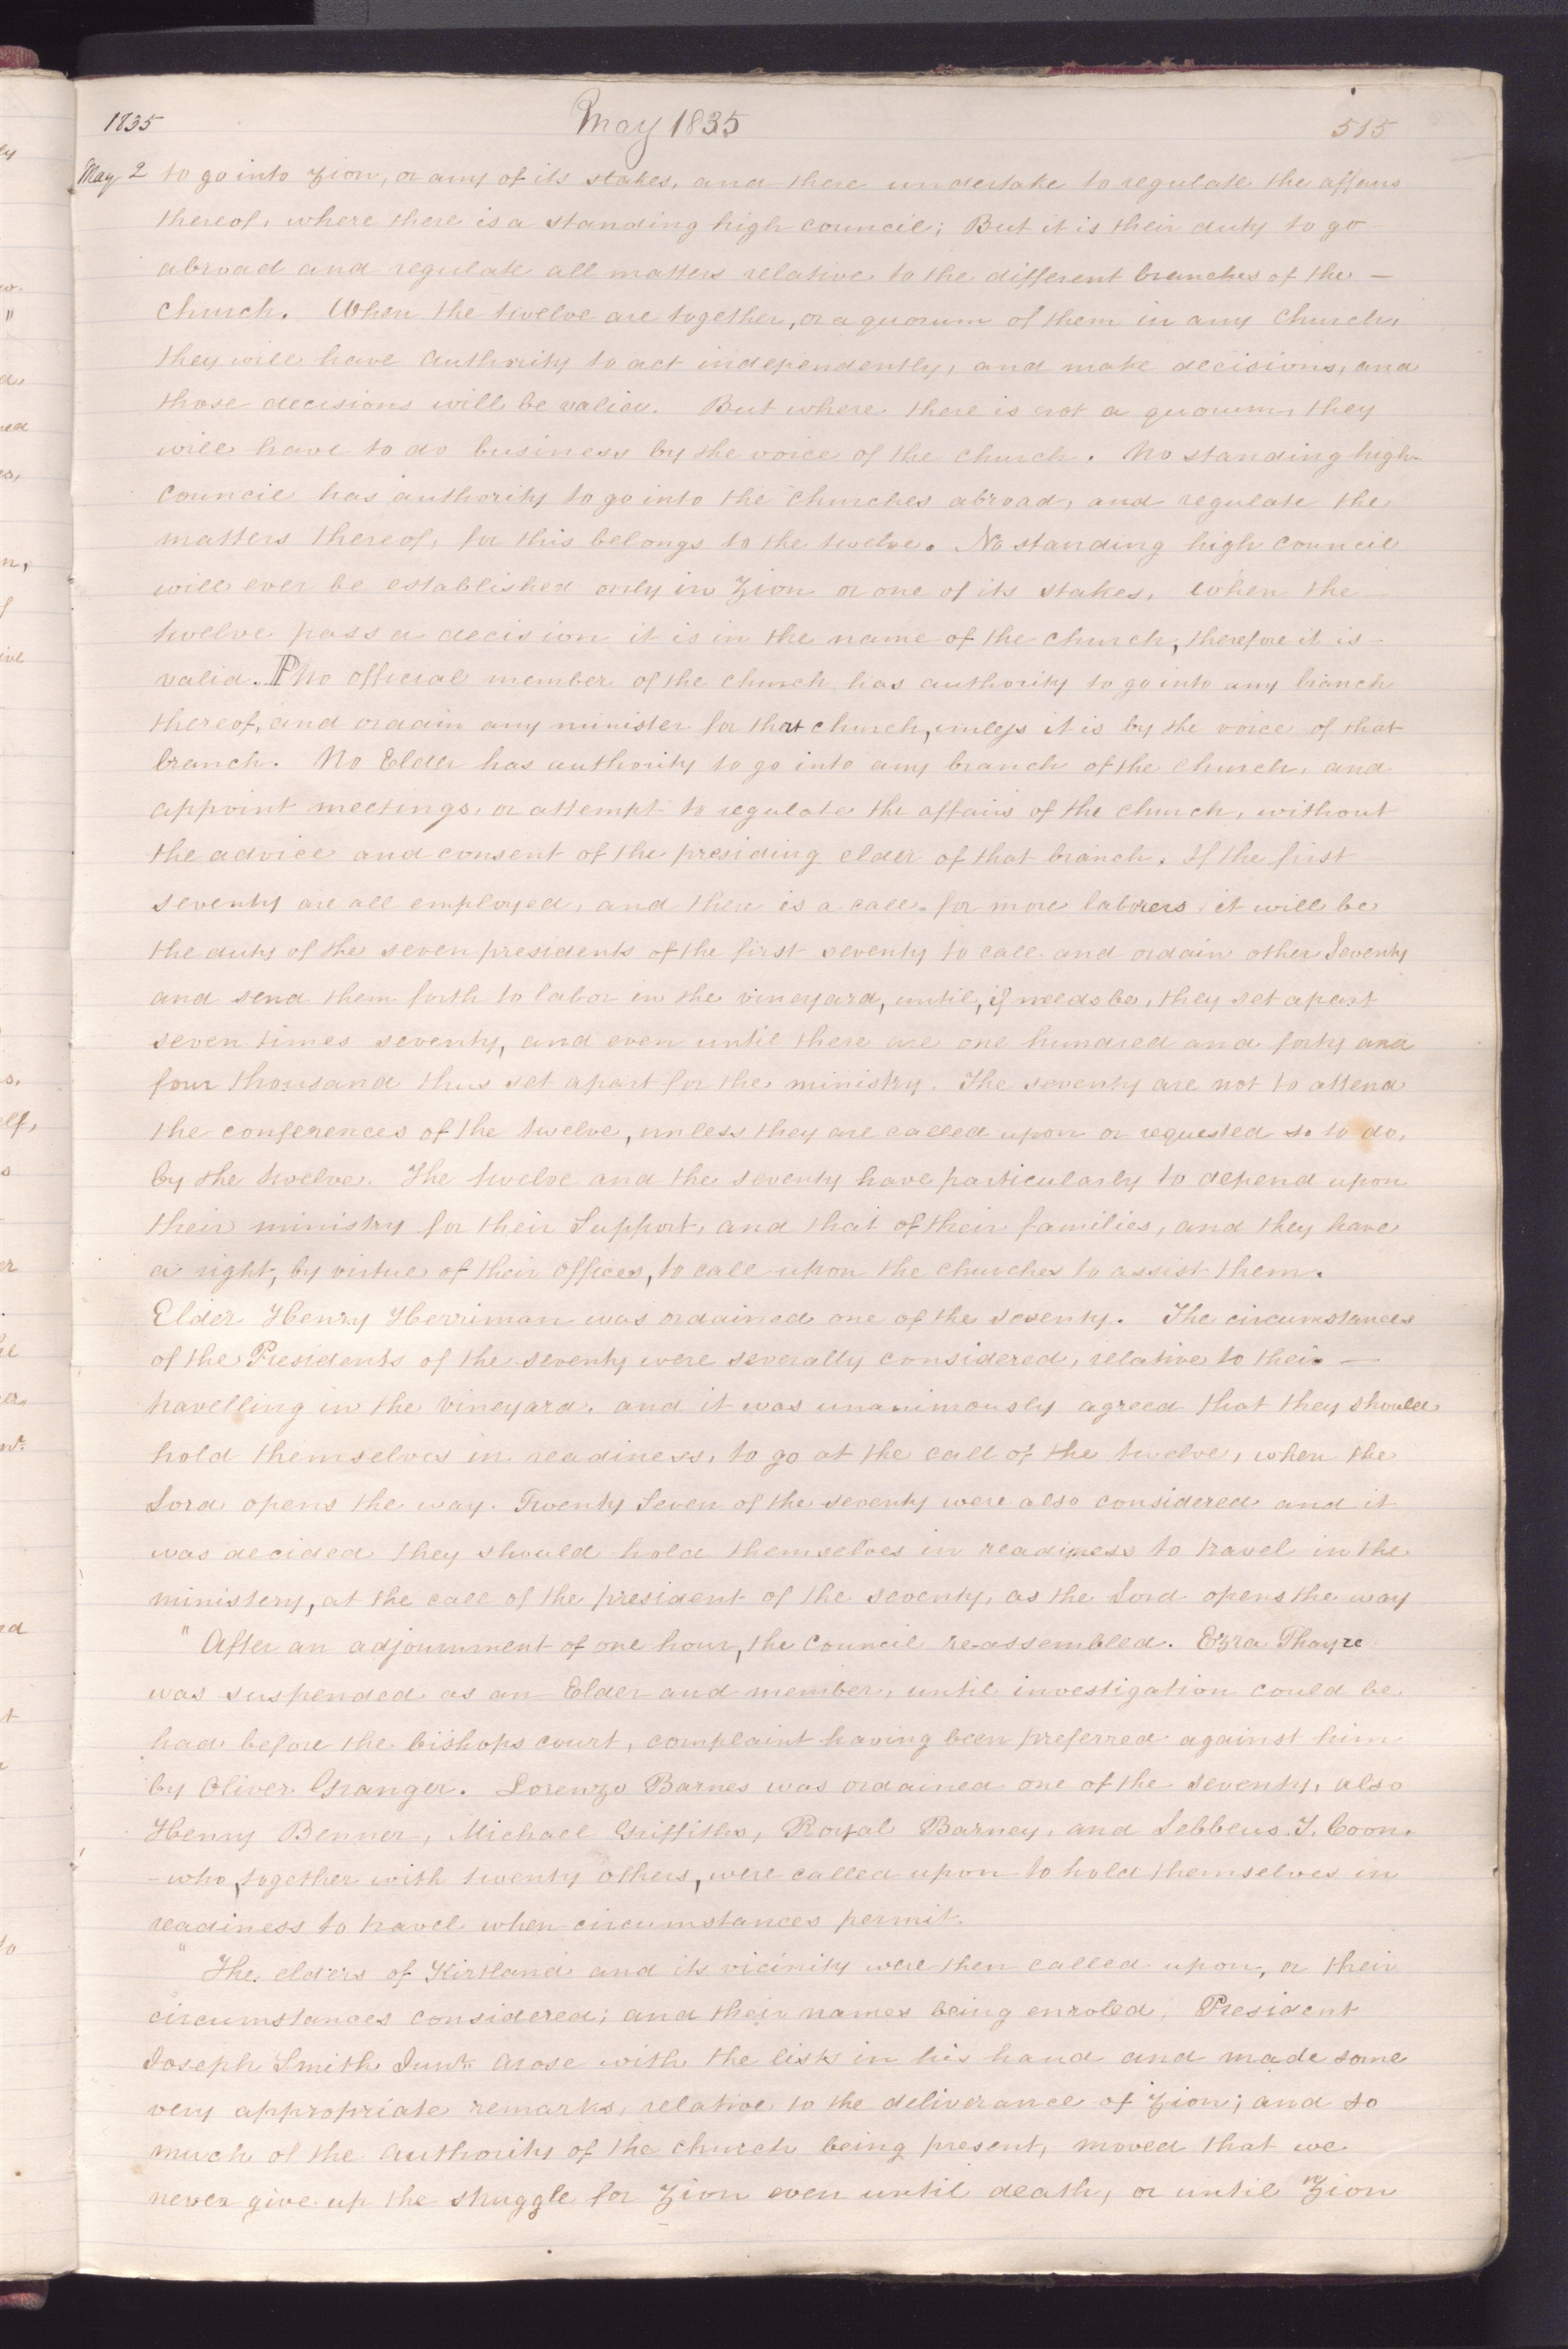 1835 May 1835 515
May 2 to go into Zion, or any of its stakes, and there undertake to regulate the affairs
thereof, where there is a standing high council; But it is their duty to go
abroad and regulate all matters relative to the different branches of the —
church. When the twelve are together, or a quorum of them in any church,
they will have authority to act independently, and make decisions, and
those decisions will be valid. But where there is not a quorum, they
will have to do business by the voice of the church. No standing high
council has authority to go into the churches abroad, and regulate the
matters thereof, for this belongs to the twelve. No standing high council
will ever be established only in Zion or one of its stakes. When the
twelve pass a decision it is in the name of the church, therefore it is
valid. P No official member of the church has authority to go into any branch
thereof, and ordain any minister for that church, unless it is by the voice of that
branch. No Elder has authority to go into any branch of the church, and
appoint meetings, or attempt to regulate the affairs of the church, without
the advice and consent of the presiding elder of that branch. If the first
seventy are all employed, and there is a call for more laborers it will be
the duty of the seven presidents of the first seventy to call and ordain other Seventy
and send them forth to labor in the vineyard, until, if needs be, they set apart
seven times seventy, and even until there are one hundred and forty and
four thousand thus set apart for the ministry. The seventy are not to attend
the conferences of the twelve, unless they are called upon or requested so to do,
by the twelve. The twelve and the seventy have particularly to depend upon
their ministry for their Support, and that of their families, and they have
a right, by virtue of their offices, to call upon the churches to assist them.
Elder Henry Herriman was ordained one of the seventy. The circumstances
of the Presidents of the seventy were severally considered, relative to their —
travelling in the vineyard, and it was unanimously agreed that they should
hold themselves in readiness, to go at the call of the twelve, when the
Lord opens the way. Twenty Seven of the seventy were also considered and it
was decided they should hold themselves in readiness to travel in the
ministery, at the call of the president of the seventy, as the Lord opens the way
" After an adjournment of one hour, the council re-assembled. Ezra Thayre
was suspended as an Elder and member, until investigation could be
had before the bishops court, complaint having been preferred against him
by Oliver Granger. Lorenzo Barnes was ordained one of the seventy, also
Henry Benner, Michael Griffiths, Royal Barney, and Lebbeus T. Coon.
- who, together with twenty others, were called upon to hold themselves in
readiness to travel when circumstances permit.
" The elders of Kirtland and its vicinity were then called upon, or their
circumstances considered; and their names being enroled, President
Joseph Smith Junr. arose with the lists in his hand and made some
very appropriate remarks, relative to the deliverance of Zion; and so
much of the authority of the church being present, moved that we
never give up the struggle for Zion even until death, or until Zion